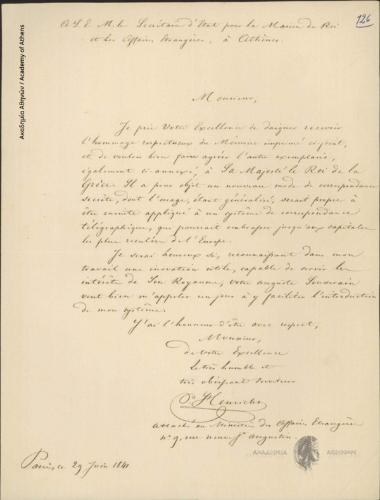 126
A S. E. M. le Secrétaire d'Etat pour la Maison du Roi
et les Affaires Etrangères, à Athènes.
Monsieur,
Je prie Votre Excellence de daigner recevoir
l'hommage respectueux du Mémoire imprimé ci-joint,
et de vouloir bien faire agréer l'autre exemplaire,
également ci-annexé, à Sa Majesté le Roi de la
Grèce. Il a pour objet un nouveau mode de correspondance
secrète, dont l'usage, étant généralisé, serait propre à
être ensuite appliqué à un système de correspondance
télégraphique, qui pourrait embrasser jusqu'aux capitales
les plus reculées de l'Europe.
Je serai heureux si, reconnaissant dans mon
travail une innovation utile, capable de servir les
intérêts de Son Royaume, votre auguste Souverain
veut bien m'appeler un jour à y faciliter l'introduction
de mon système.
J'ai l'honneur d'être avec respect,
Monsieur,
de Votre Excellence
Le très humble et
très obéissant serviteur
Henrichs
attaché au Ministère des Affaires Etrangères
n° 9, rue neuve St Augustin
Paris, ce 29 Juin 1841
Ακαδημία Αθηνών / Academy of Athens
ΑΚΑΔΗΜΙΑ ΑΘΗΝΩΝ